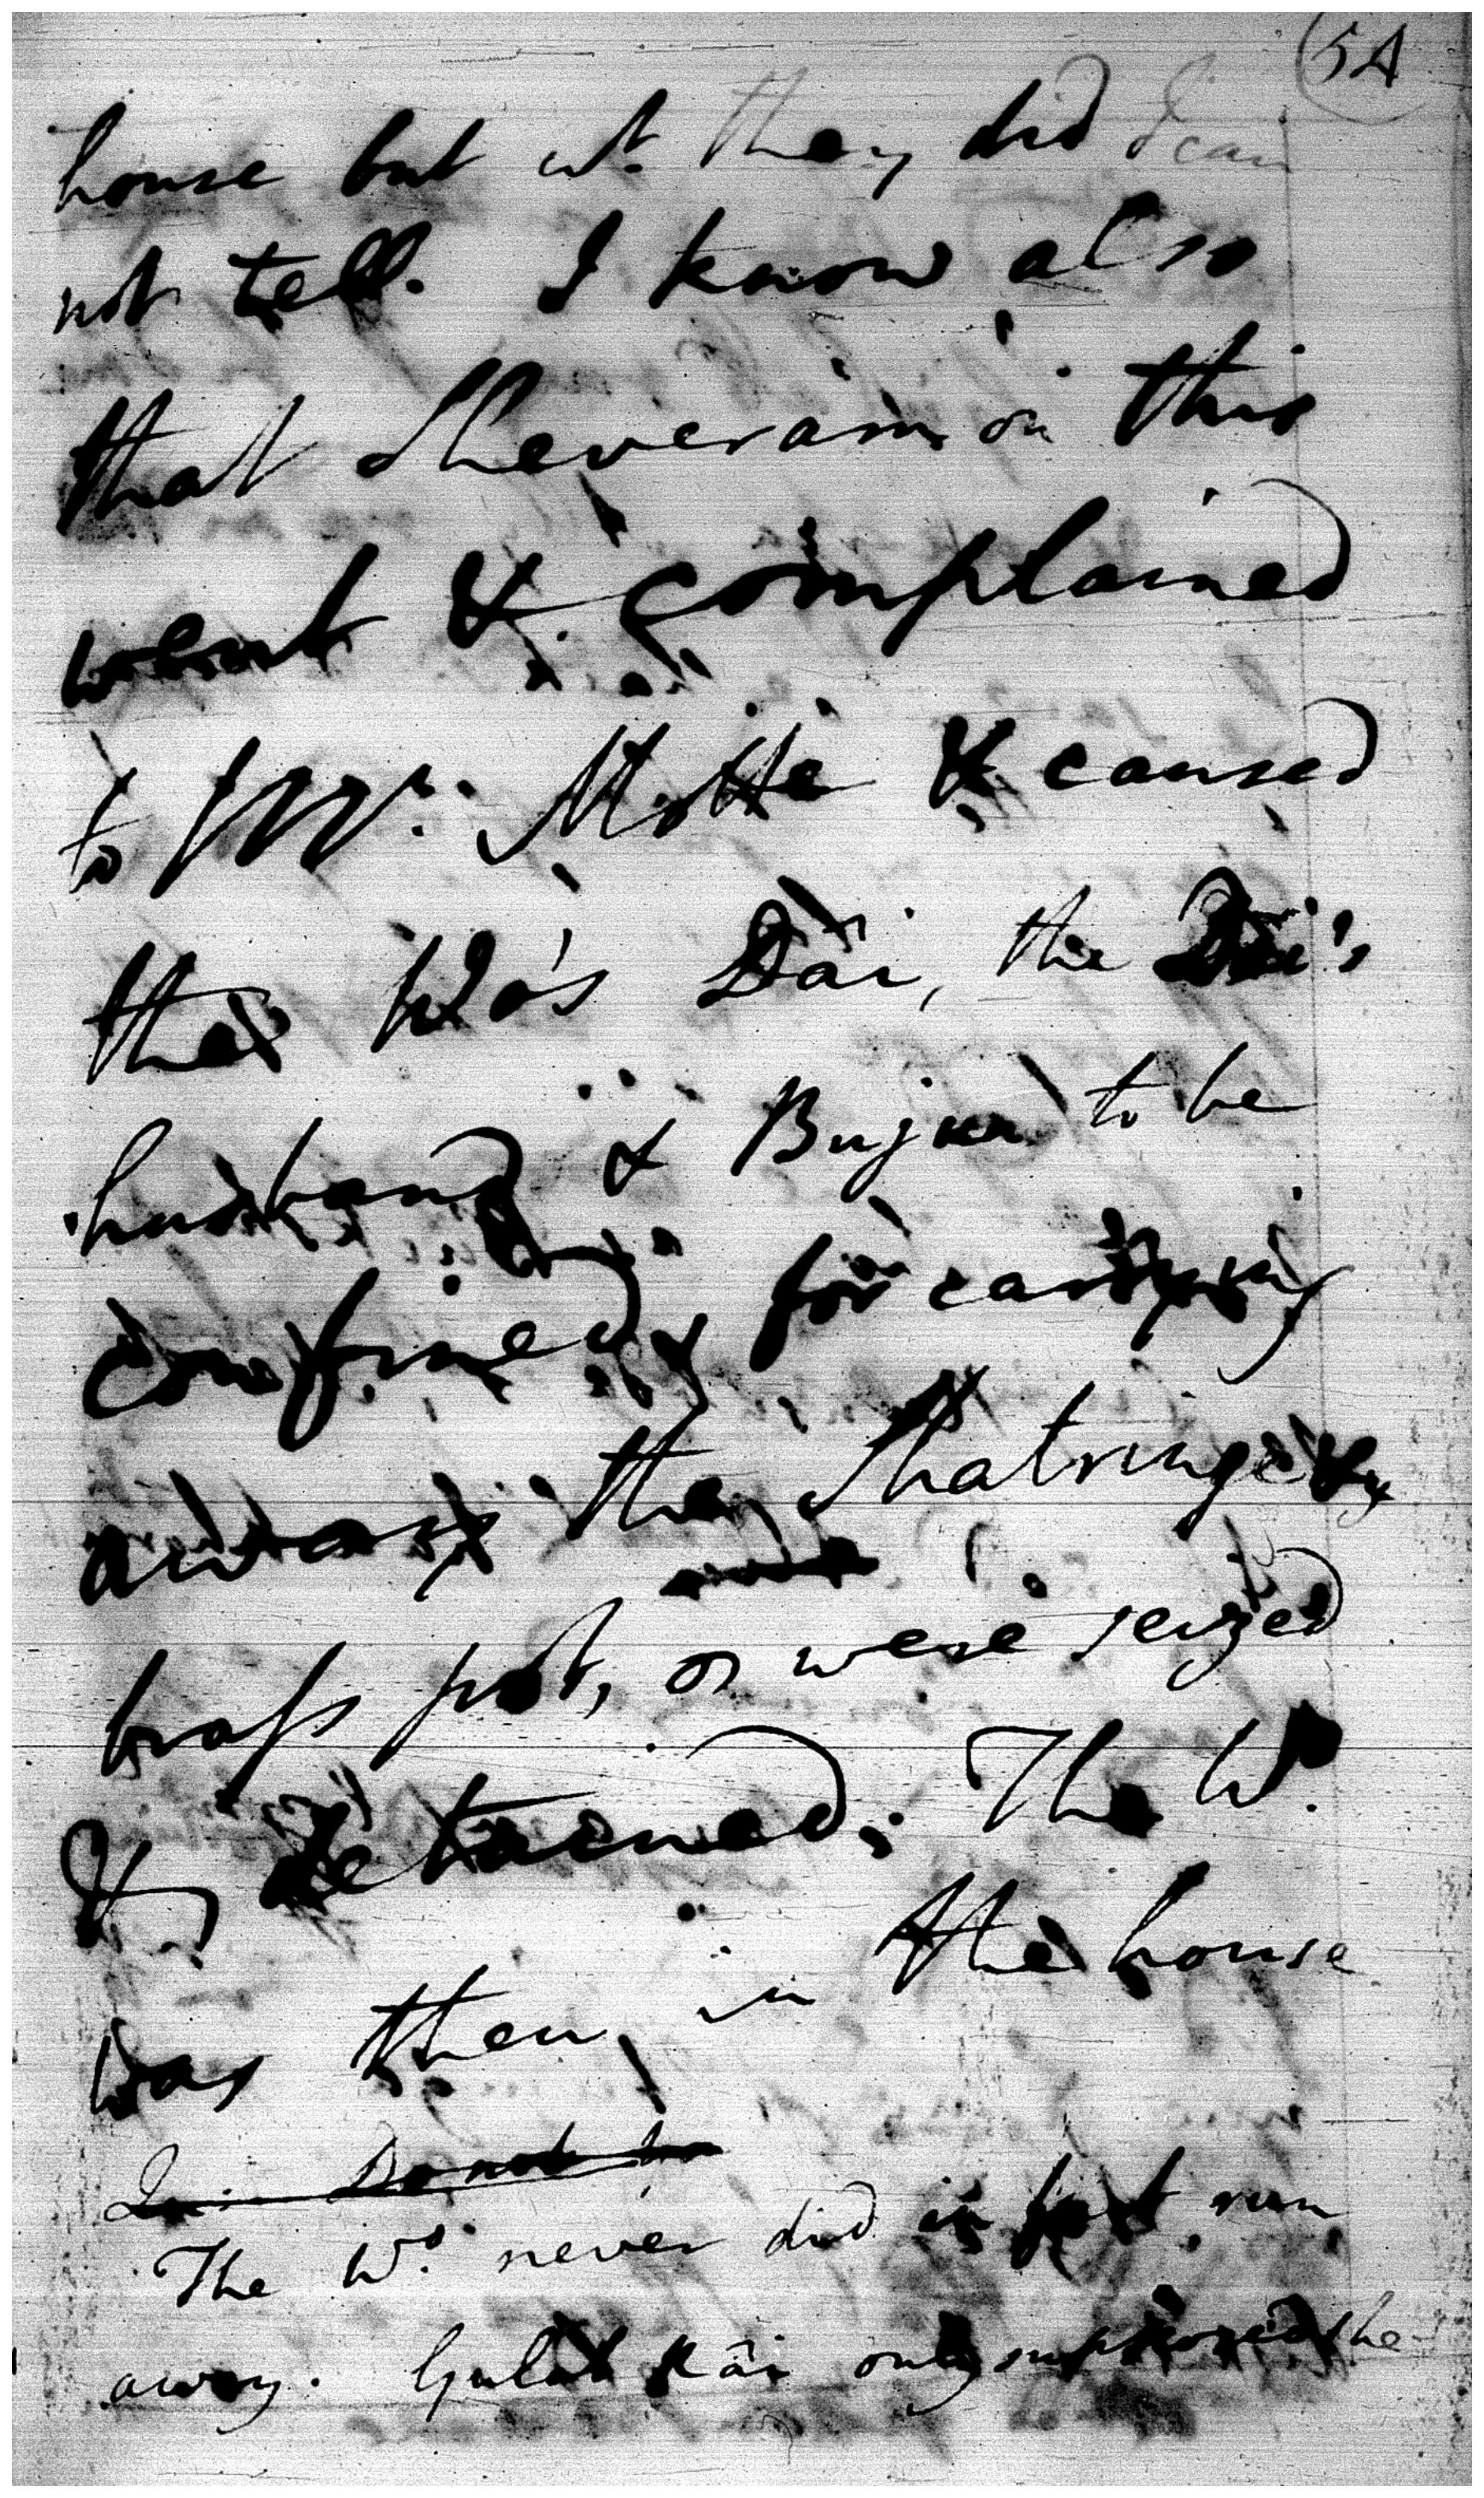 54
house but wt. they did I can
not tell. I know also
that Sheveram on this
went &. complained
to Mr. Motte & caused
the Wo's Dai, the Dai's
husband & Bujen to be
confined, for carrying
away the Shatringee &
brass pot, or were seized
& detained. The W.
was then in the house
The Wo. never did in fact run
away. Gulab Rai only supposed she